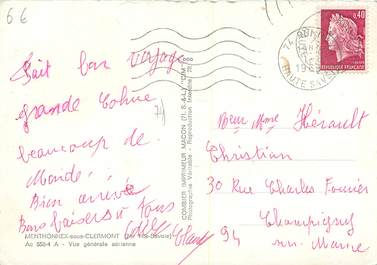 6€
Fait bon voyage
grande Cohue
beaucoup de
Monde!!
Bien arrivée
Bons baisers à tous
MENTHONNEX-sous-CLERMONT
Ac 558-4 A - Vue générale aérienne
COMBIER IMPRIMEUR MACON (71. S.-&-L.) "CIM"
Photographie Véritable - Reproduction Interdite
74
HAUTE SAVOIE
0,40
REPUBLIQUE FRANÇAISE
Hérault
Christian
30 Rue Charles Fourier
Champigny
94 sur Marne